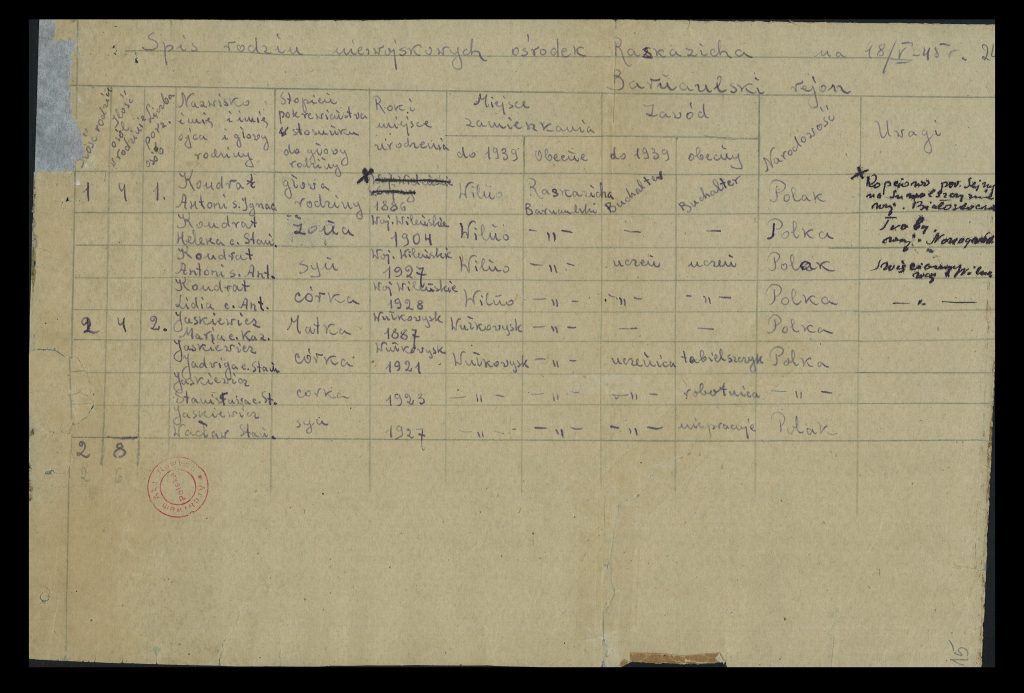 Spis rodzin niewojskowych ośrodek Raskazicha na 18/V-45 r.
Barnaulski rejon
Ilość rodzin
Liczba porz.
Nazwisko imię i imię ojca i głowy rodziny
Stopień pokrewieństwa w stosunku do głowy rodziny
Rok i miejsce urodzenia
Miejsce zamieszkania
do 1939
obecne
Zawód
do 1939
obecny
Narodowość
Uwagi
1 4 1. Kondrat Antoni s. Ignac głowa rodziny 1886 Wilno Raskazicha Barnaulski Buchalter Buchalter Polak
Kondrat Helena c. Stan. Żona Woj. Wileńskie 1904 Wilno -"- — — Polka
Kondrat Antoni s. Ant. syn Woj. Wileńskie 1927 Wilno -"- uczeń uczeń Polak
Kondrat Lidia c. Ant. córka Woj Wileńskie 1928 Wilno -"- -"- -"- Polka — " —
2 4 2. Jaskiewicz Marja c. Kaz. Matka Wułkovysk 1887 Wułkovysk -"- — — Polka
Jaskiewicz Jadwiga c. Stan córka Wułkovysk 1921 Wułkovysk -"- uczenica tabielszczyk Polka
Jaskiewicz c. St. corka 1923 -"- -"- -"- robotnica -"-
Jaskiewicz Wacław Stan. syn 1927 -"- -"- -"- niepracuje Polak
2 8
15